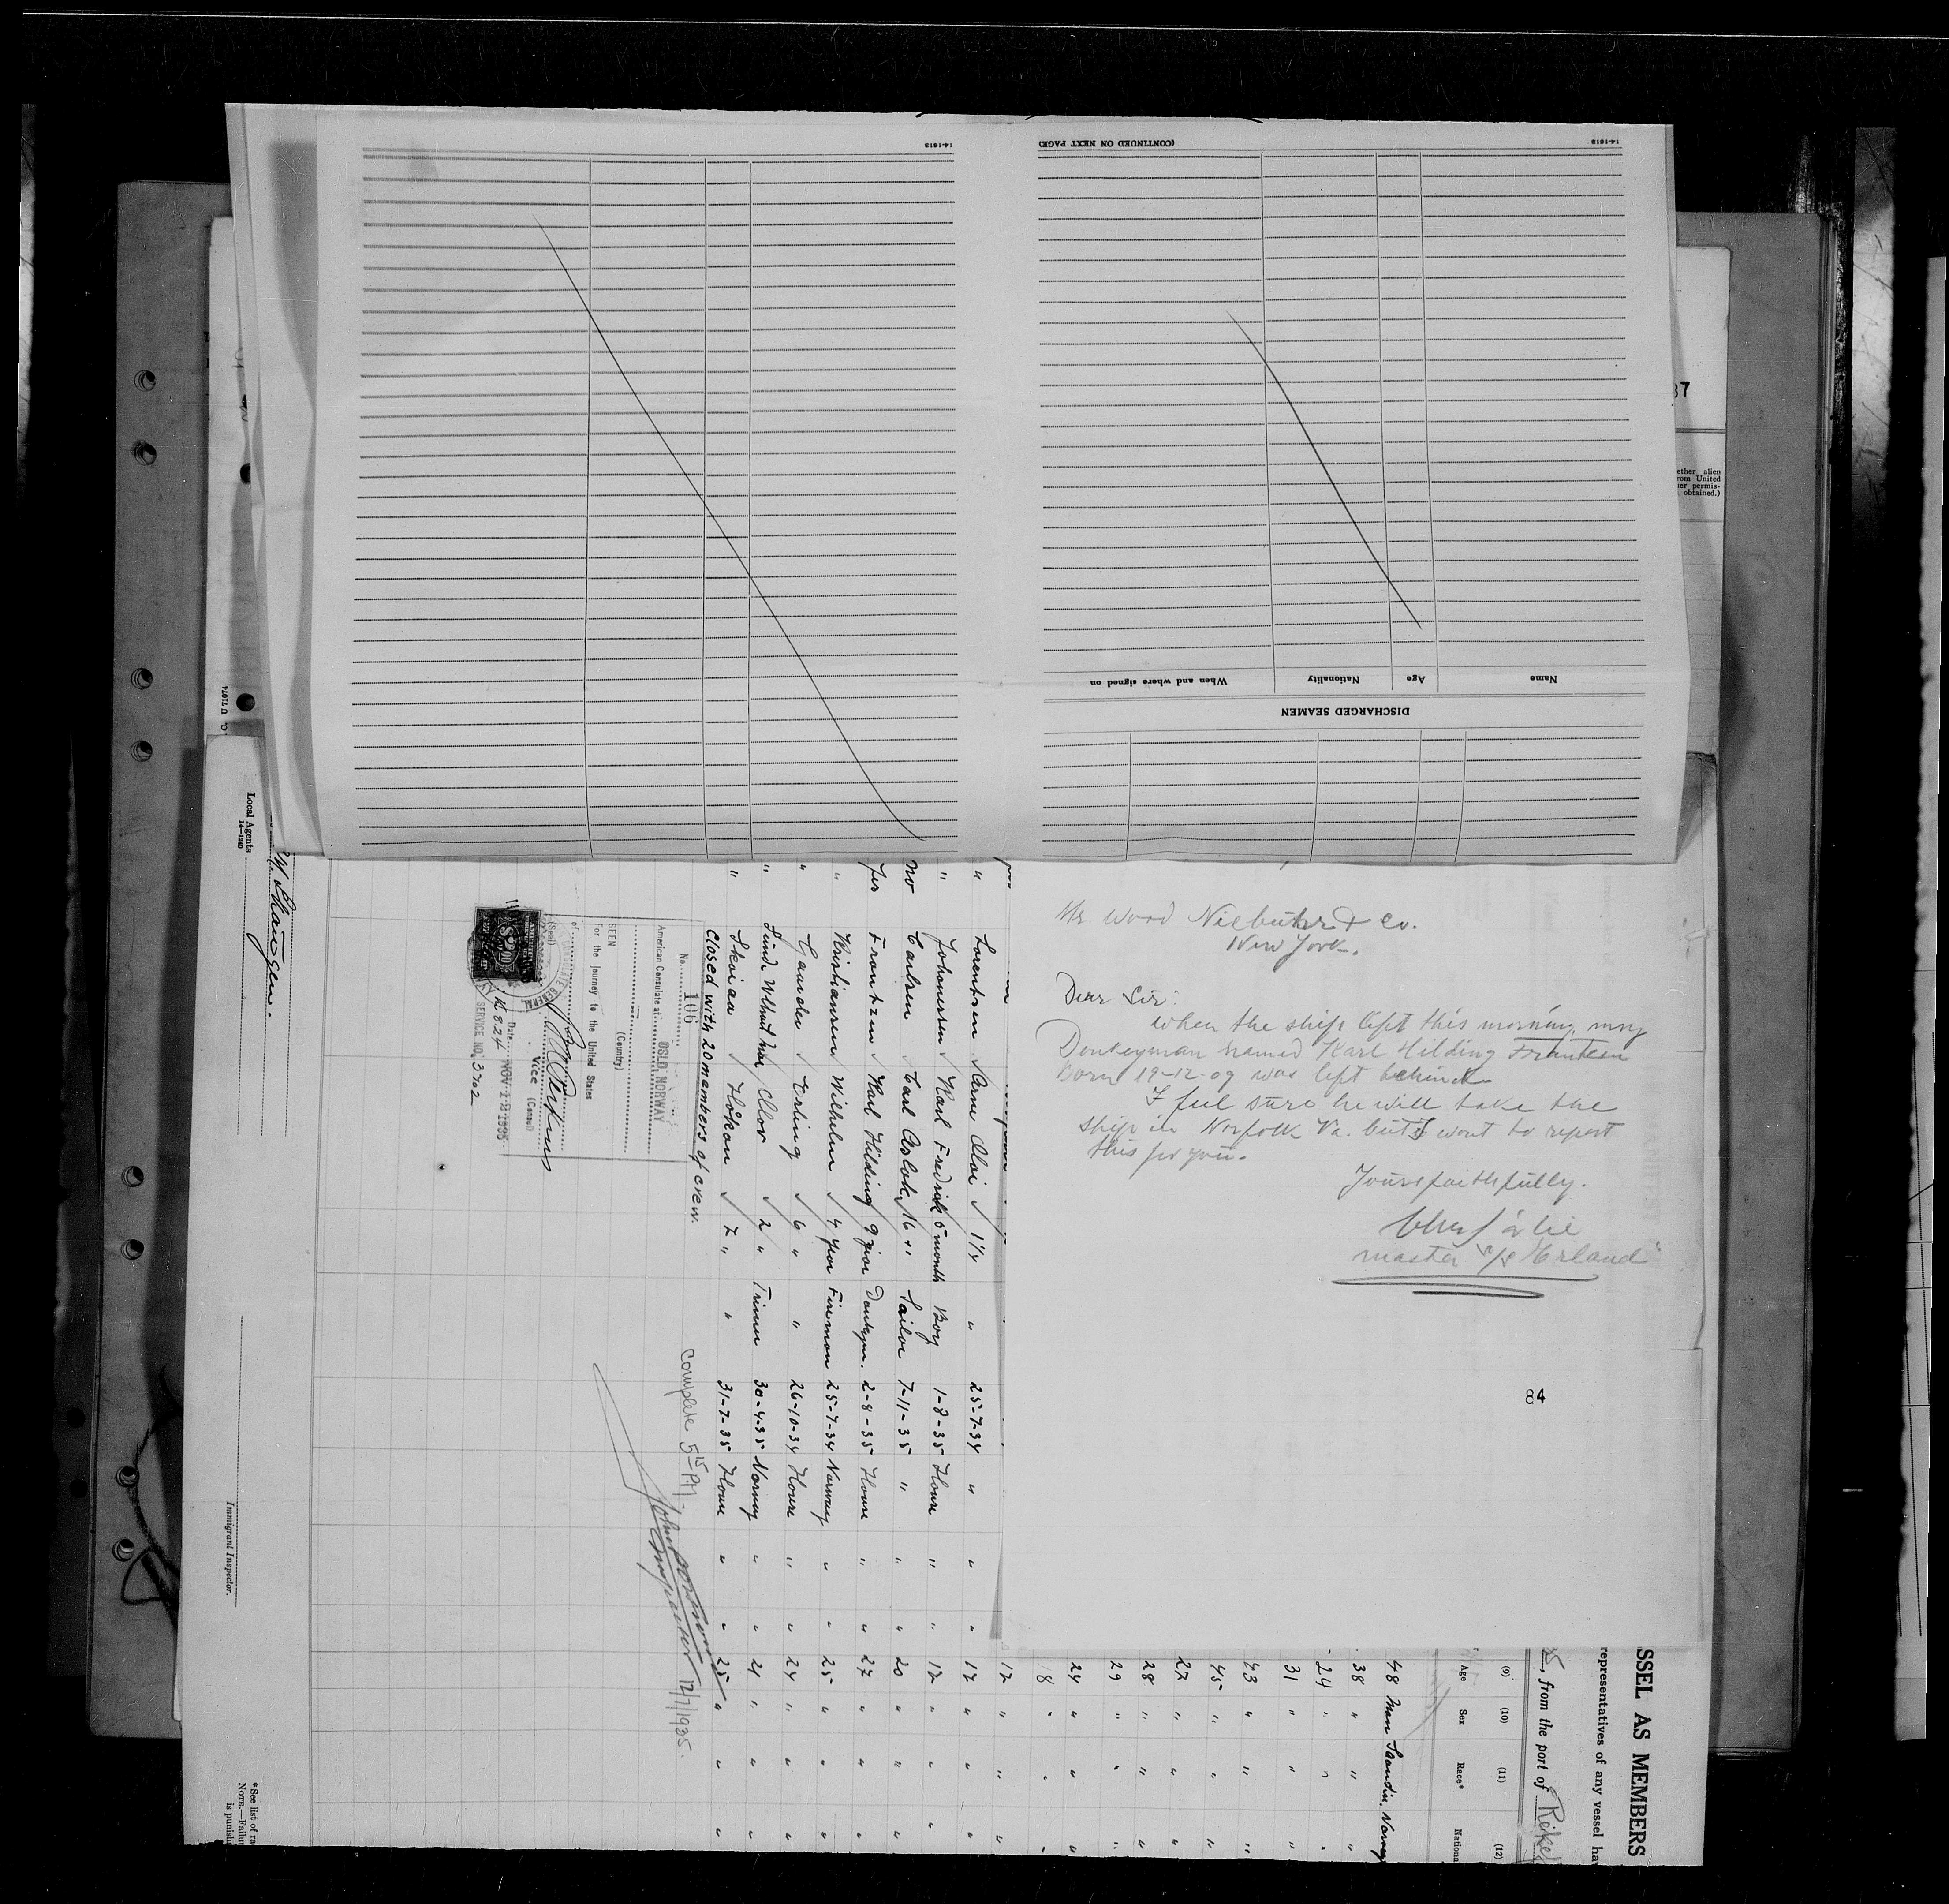 14-1613
(CONTINUED ON NEXT PAGE)
14-1613
Name
Age
Nationality
When and where signed on
DISCHARGED SEAMEN
87
ether alien
rom United
er permis-
obtained.)
Mr. Wood Niebuhr & Co.
New York.
Dear Sir:
When the ship left this morning, my
Donkeyman named Karl Hilding Frantzen
Born 19-12-09 was left behind.
I feel sure he will take the
ship in Norfolk Va. but I wont to report
this for you.
Yours faithfully.
master s/s Erland
84
SSEL AS MEMBERS
representatives of any vessel ha
5, from the port of
(9) (10) (11) (12)
Age Sex Race* Nationa
48 Man Scandin. Norway
38 " " "
24 " " "
31 " " "
43 " " "
45 " " "
27 " " "
28 " " "
29 " " "
24 " " "
8 " " "
17 " " "
" Lorentsen Arne Olai 1 1/2 " 25-7-34 " " " 17 " " "
" Johannessen Karl Fredrik 5 month Boy 1-8-35 House " " 17 " " "
no Carlsen Carl Aslak 16 " Sailor 7-11-35 " " " 20 " " "
yes Frantzen Karl Hilding 9 year Donkeym. 2-8-35 House " " 27 " " "
" Kristiansen Wilhelm 4 year Fireman 25-7-34 Norway " " 25 " " "
" Gander Erling 6 " " 26-10-34 House " " 24 " " "
" Olav 2 " Trimmer 30-4-35 Norway " " 21 " " "
" Skoiaa Håkon 7 " " 31-7-35 House " " 25 " " "
Closed with 20 members of crew.
No. 106
American Consulate at OSLO, NORWAY
(Country)
SEEN
For the journey to the United States
of
Vice (Consul)
(Seal)
Date NOV 12 1935
SERVICE NO. 3702
Complete 5 15 PM
Inspector 12/1/1935.
Local Agents
14-1240
Immigrant Inspector.
*See list of ra
NOTE.—Failur
is punisha